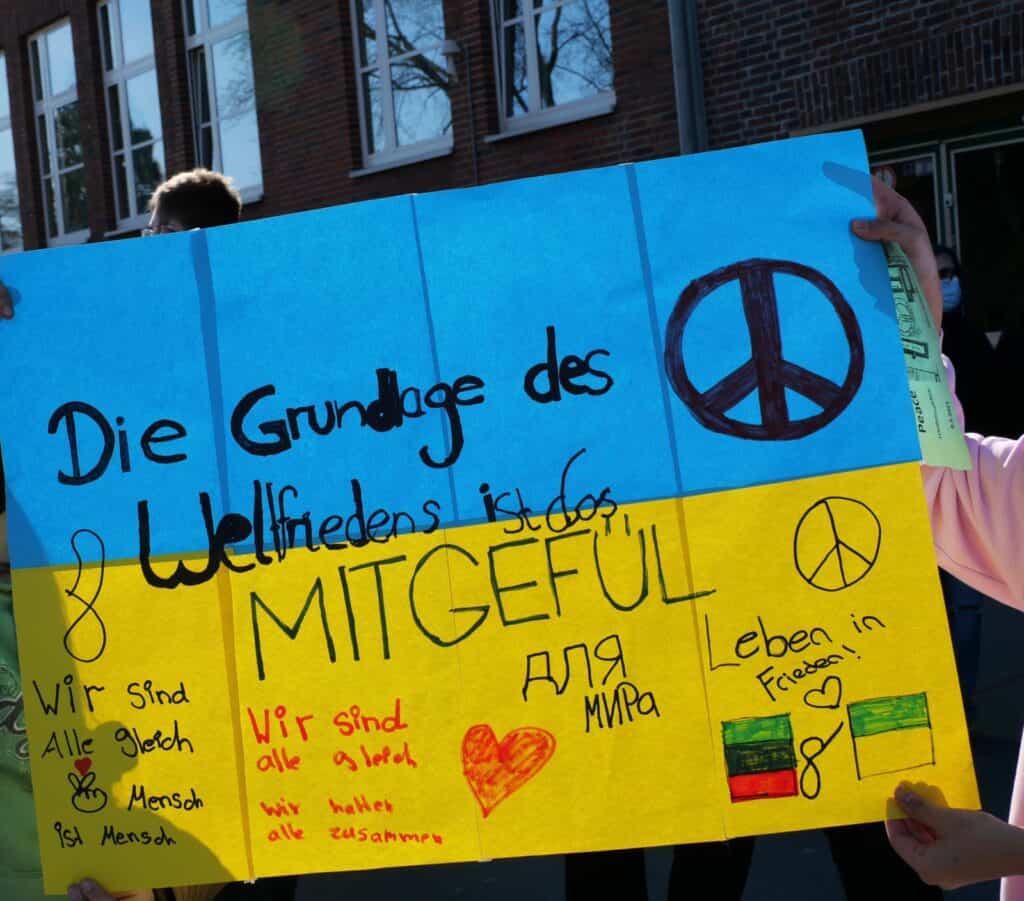 Die Grundlage des
Weltfriedens ist das
MITGEFÜL
ДЛЯ
МИРа
Leben in
Frieden!
Wir sind
Alle gleich
Mensch
ist Mensch
Wir sind
alle gleich
wir halten
alle zusammen
&
Peace